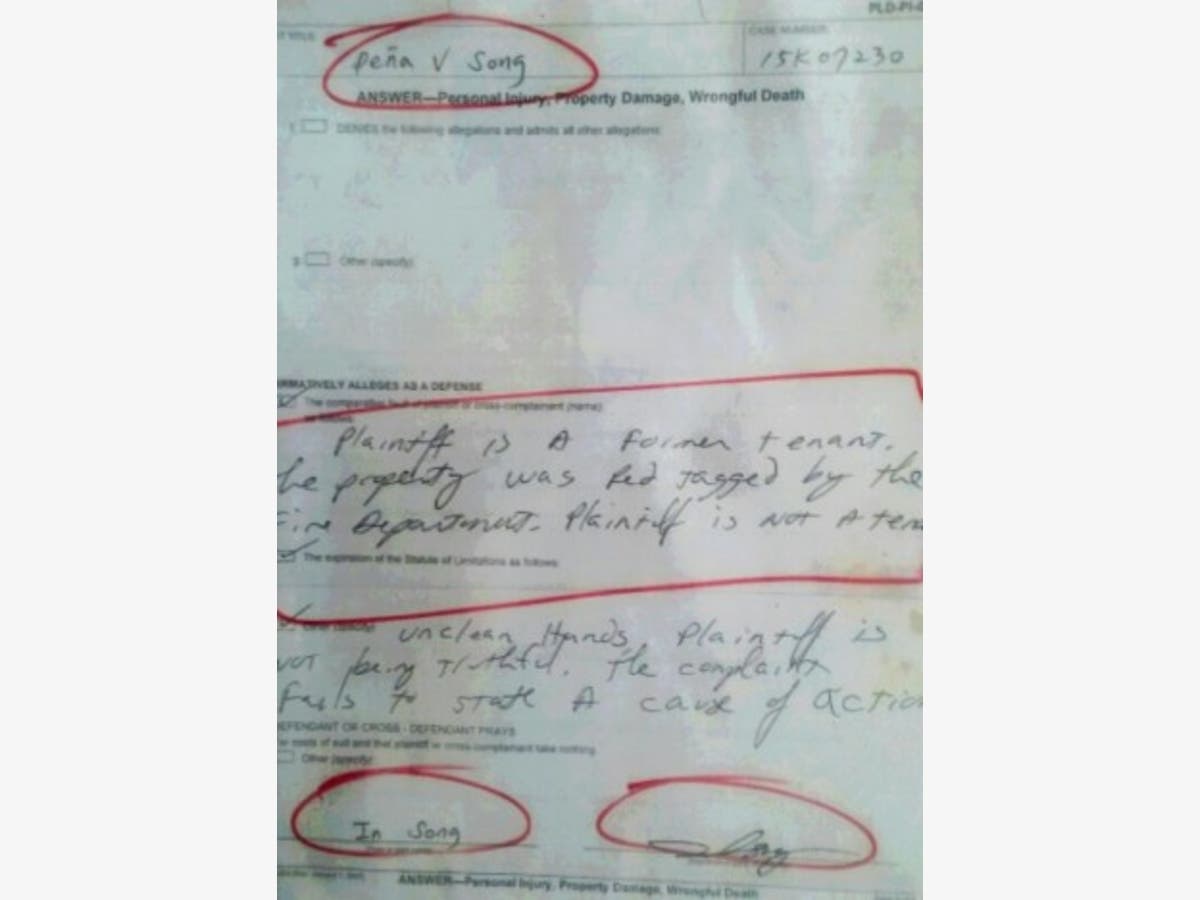 PLD-PI-0
CASE NUMBER
Peña V Song
15K07230
ANSWER—Personal Injury, Property Damage, Wrongful Death
DENIES the following allegations and admits all other allegations:
Other (specify):
RMATIVELY ALLEGES AS A DEFENSE
The comparative fault of plaintiff or cross-complainant (name):
as follows:
Plaintff is A Former tenant.
he property was Red Tagged by the
Fire Department. Plaintiff is NOT A tena
The expiration of the Statute of Limitations as follows:
Other (specify):
Unclean Hands, Plaintiff is
NOT being Truthful. The complaint
Fails to state A cause of action
DEFENDANT OR CROSS-DEFENDANT PRAYS
For costs of suit and that plaintiff or cross-complainant take nothing.
Other (specify):
In Song
ANSWER—Personal Injury, Property Damage, Wrongful Death